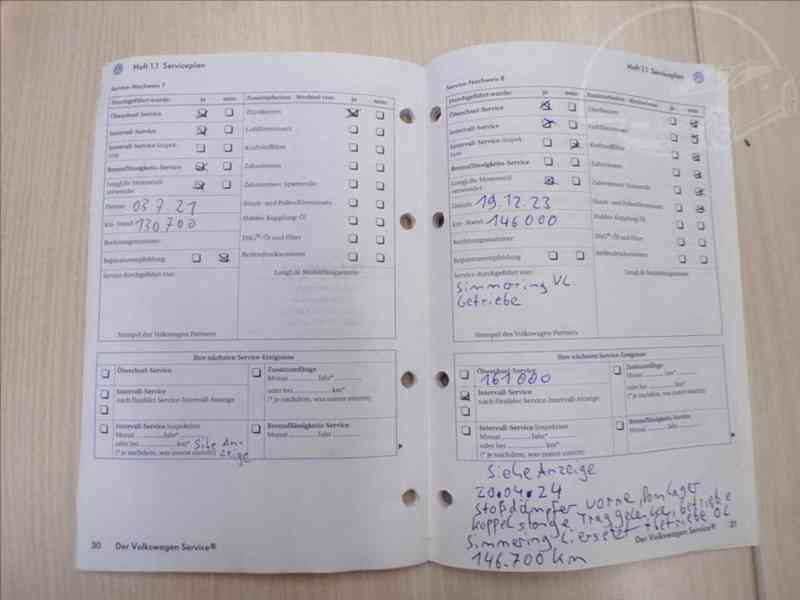 Heft 1.1 Serviceplan
Service-Nachweis 7
Durchgeführt wurde: ja nein
Ölwechsel-Service
Intervall-Service
Intervall-Service Inspektion
Bremsflüssigkeits-Service
LongLife Motorenöl verwendet
Datum: 03.7.21
km-Stand: 130700
Rechnungsnummer
Reparaturempfehlung
Service durchgeführt von:
Stempel des Volkswagen Partners
Zusatzarbeiten - Wechsel von: ja nein
Zündkerzen
Luftfiltereinsatz
Kraftstofffilter
Zahnriemen
Zahnriemen-Spannrolle
Staub- und Pollenfiltereinsatz
Haldex Kupplung-Öl
DSG®-Öl und Filter
Reifendichtmittel
Ihre nächsten Service-Ereignisse
Ölwechsel-Service
Intervall-Service
nach flexibler Service-Intervall-Anzeige
Intervall-Service Inspektion
Monat Jahr*
oder bei km*
(* je nachdem, was zuerst eintritt)
Siehe An-
zeige
Zusatzumfänge
Monat Jahr*
oder bei km*
(* je nachdem, was zuerst eintritt)
Bremsflüssigkeits-Service
Monat Jahr
30 Der Volkswagen Service®
Heft 1.1 Serviceplan
Service-Nachweis 8
Durchgeführt wurde: ja nein
Ölwechsel-Service
Intervall-Service
Intervall-Service Inspektion
Bremsflüssigkeits-Service
LongLife Motorenöl verwendet
Datum: 19.12.23
km-Stand: 146000
Rechnungsnummer
Reparaturempfehlung
Service durchgeführt von:
Simmering VL
Getriebe
Stempel des Volkswagen Partners
Zündkerzen
Luftfiltereinsatz
Kraftstofffilter
Zahnriemen
Zahnriemen-Spannrolle
Staub- und Pollenfiltereinsatz
Haldex Kupplung-Öl
DSG®-Öl und Filter
Reifendichtmittel
Ihre nächsten Service-Ereignisse
Ölwechsel-Service
161000
Intervall-Service
nach flexibler Service-Intervall-Anzeige
Intervall-Service Inspektion
Monat Jahr*
oder bei km*
(* je nachdem, was zuerst eintritt)
Zusatzumfänge
Monat Jahr*
oder bei km*
(* je nachdem, was zuerst eintritt)
Bremsflüssigkeits-Service
Monat Jahr
Siehe Anzeige
20.04.24
Stoßdämpfer vorne, Domlager
Koppelstange Traggelenke, Getriebe
Simmering L ersetzt Getriebe Öl
146.700 km
Der Volkswagen Service® 31